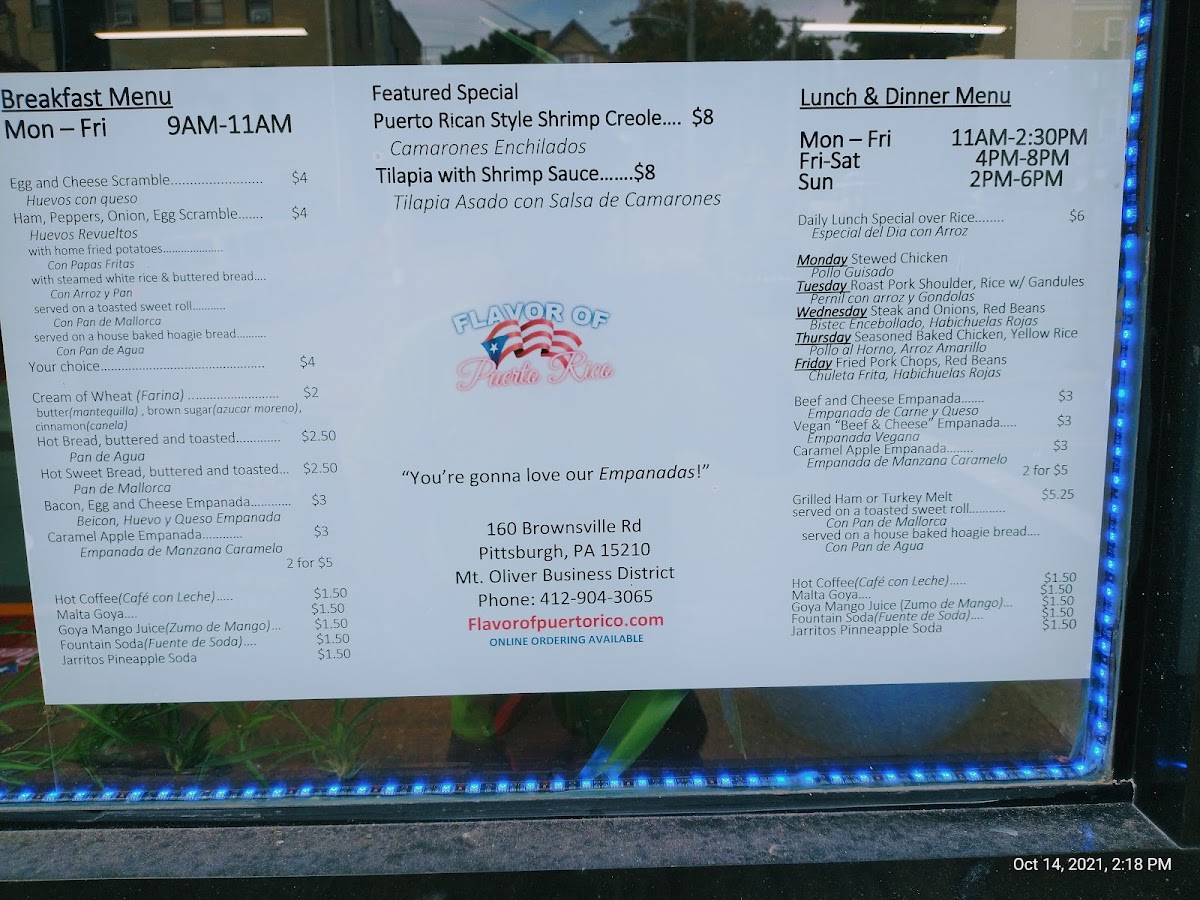 Breakfast Menu
Mon – Fri 9AM-11AM
Egg and Cheese Scramble........................ $4
Huevos con queso
Ham, Peppers, Onion, Egg Scramble....... $4
Huevos Revueltos
with home fried potatoes....................
Con Papas Fritas
with steamed white rice & buttered bread....
Con Arroz y Pan
served on a toasted sweet roll...........
Con Pan de Mallorca
served on a house baked hoagie bread..........
Con Pan de Agua
Your choice........................................... $4
Cream of Wheat (Farina) ........................ $2
butter(mantequilla) , brown sugar(azucar moreno),
cinnamon(canela)
Hot Bread, buttered and toasted............. $2.50
Pan de Agua
Hot Sweet Bread, buttered and toasted... $2.50
Pan de Mallorca
Bacon, Egg and Cheese Empanada............ $3
Beicon, Huevo y Queso Empanada
Caramel Apple Empanada............ $3
Empanada de Manzana Caramelo
2 for $5
Hot Coffee(Café con Leche)..... $1.50
Malta Goya.... $1.50
Goya Mango Juice(Zumo de Mango)... $1.50
Fountain Soda(Fuente de Soda).... $1.50
Jarritos Pineapple Soda $1.50
Featured Special
Puerto Rican Style Shrimp Creole.... $8
Camarones Enchilados
Tilapia with Shrimp Sauce.......$8
Tilapia Asado con Salsa de Camarones
FLAVOR OF
Puerto Rico
“You’re gonna love our Empanadas!”
160 Brownsville Rd
Pittsburgh, PA 15210
Mt. Oliver Business District
Phone: 412-904-3065
Flavorofpuertorico.com
ONLINE ORDERING AVAILABLE
Lunch & Dinner Menu
Mon – Fri 11AM-2:30PM
Fri-Sat 4PM-8PM
Sun 2PM-6PM
Daily Lunch Special over Rice........ $6
Especial del Dia con Arroz
Monday Stewed Chicken
Pollo Guisado
Tuesday Roast Pork Shoulder, Rice w/ Gandules
Pernil con arroz y Gondolas
Wednesday Steak and Onions, Red Beans
Bistec Encebollado, Habichuelas Rojas
Thursday Seasoned Baked Chicken, Yellow Rice
Pollo al Horno, Arroz Amarillo
Friday Fried Pork Chops, Red Beans
Chuleta Frita, Habichuelas Rojas
Beef and Cheese Empanada....... $3
Empanada de Carne y Queso
Vegan “Beef & Cheese” Empanada..... $3
Empanada Vegana
Caramel Apple Empanada........ $3
Empanada de Manzana Caramelo
2 for $5
Grilled Ham or Turkey Melt $5.25
served on a toasted sweet roll...........
Con Pan de Mallorca
served on a house baked hoagie bread....
Con Pan de Agua
Hot Coffee(Café con Leche)..... $1.50
Malta Goya.... $1.50
Goya Mango Juice (Zumo de Mango)... $1.50
Fountain Soda(Fuente de Soda).... $1.50
Jarritos Pinneapple Soda $1.50
Oct 14, 2021, 2:18 PM